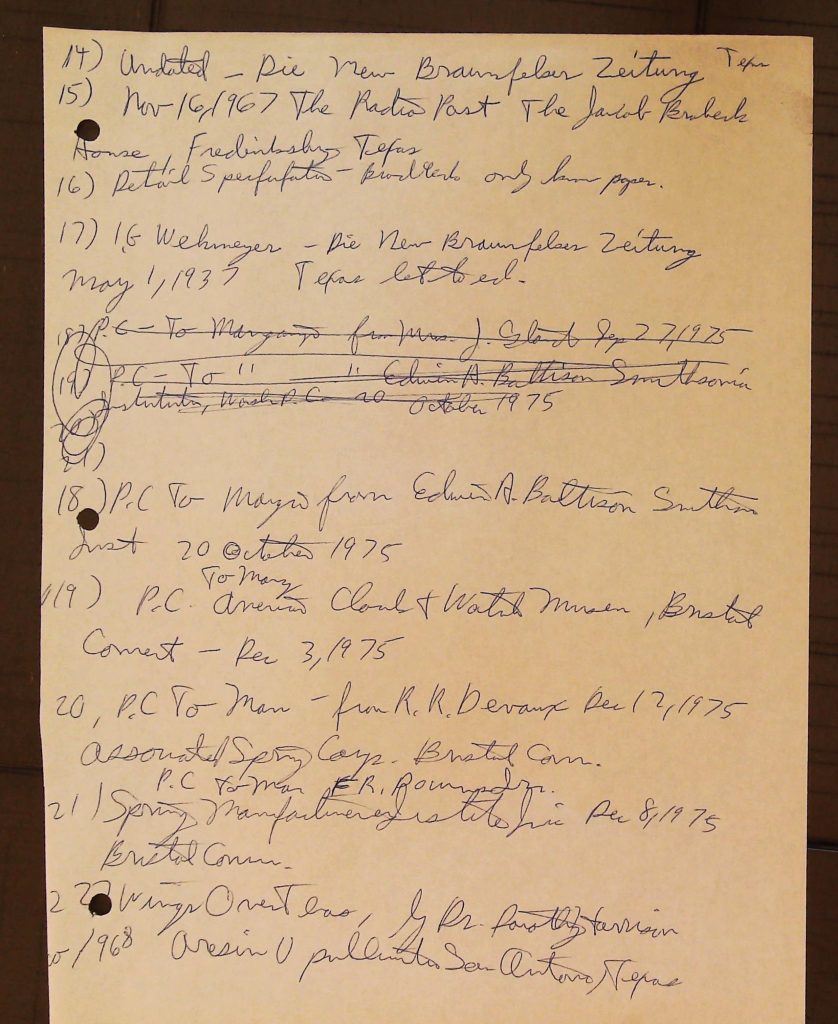 14) Undated - Die New Braunfelser Zeitung Texas
15) Nov 16, 1967 The Radio Post The Jacob Brodbeck
House, Fredericksburg Texas
16) Detail Specification - Brodbeck only known paper.
17) I.G Wehmeyer - Die New Braunfelser Zeitung
May 1, 1937 Texas let to ed.
18) P.C - To from Mrs. J. Sep 27, 1975
19) P.C - To " " Edwin A. Battison Smithsonian
Institute, Wash D.C. 20 October 1975
20)
21)
18) P.C To from Edwin A. Battison Smithson
Inst 20 October 1975
To Mary
19) P.C. American Clock & Watch Museum, Bristol
Connect - Dec 3, 1975
20, P.C To - from R. R. Devaux Dec 12, 1975
Associated Spring Corp. Bristol Conn.
P.C To E R,
21) Spring Manufacturers Institute Inc Dec 8, 1975
Bristol Conn.
22 Wings Over Texas, by Dr. Dorothy Harrison
1968 San Antonio, Texas